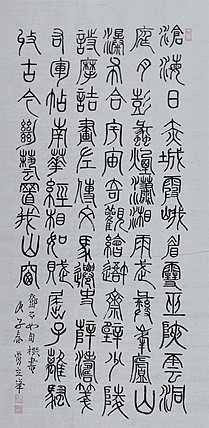 滄海日赤城霞峨眉雪巫峽雲洞
庭月彭蠡煙瀟湘雨武彝峯廬山
瀑布合宇宙奇觀繪吾齋壁少陵
詩摩詰畫左傳文馬遷史薛濤箋
右軍帖南華經相如賦屈子離騷
收古今絕藝置我山窗
鄧石如自撰書
庚子春